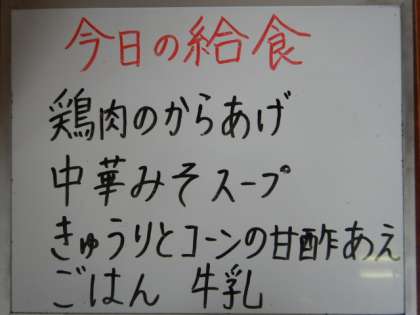 今日の給食
鶏肉のからあげ
中華みそスープ
きゅうりとコーンの甘酢あえ
ごはん 牛乳